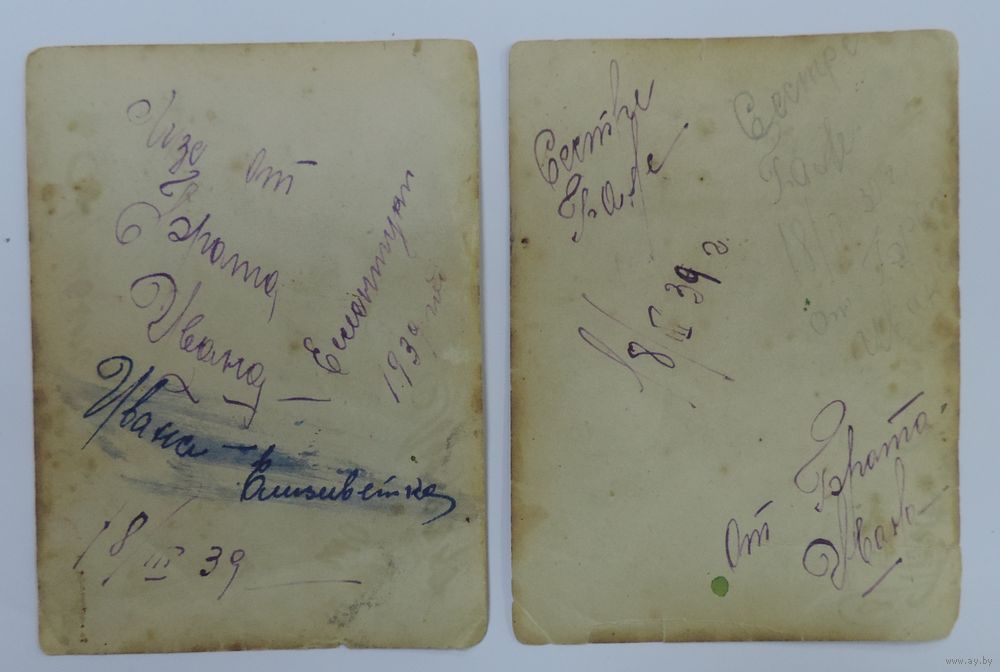 Лизе от
Брата
Ивана
Ессентуки
1939 год
Ивана —
Елизаветка
18/III 39
Сестре
Гале
18/III 39 г.
от Брата
Ивана
Сестре
Гале
18/
от
www.ay.by